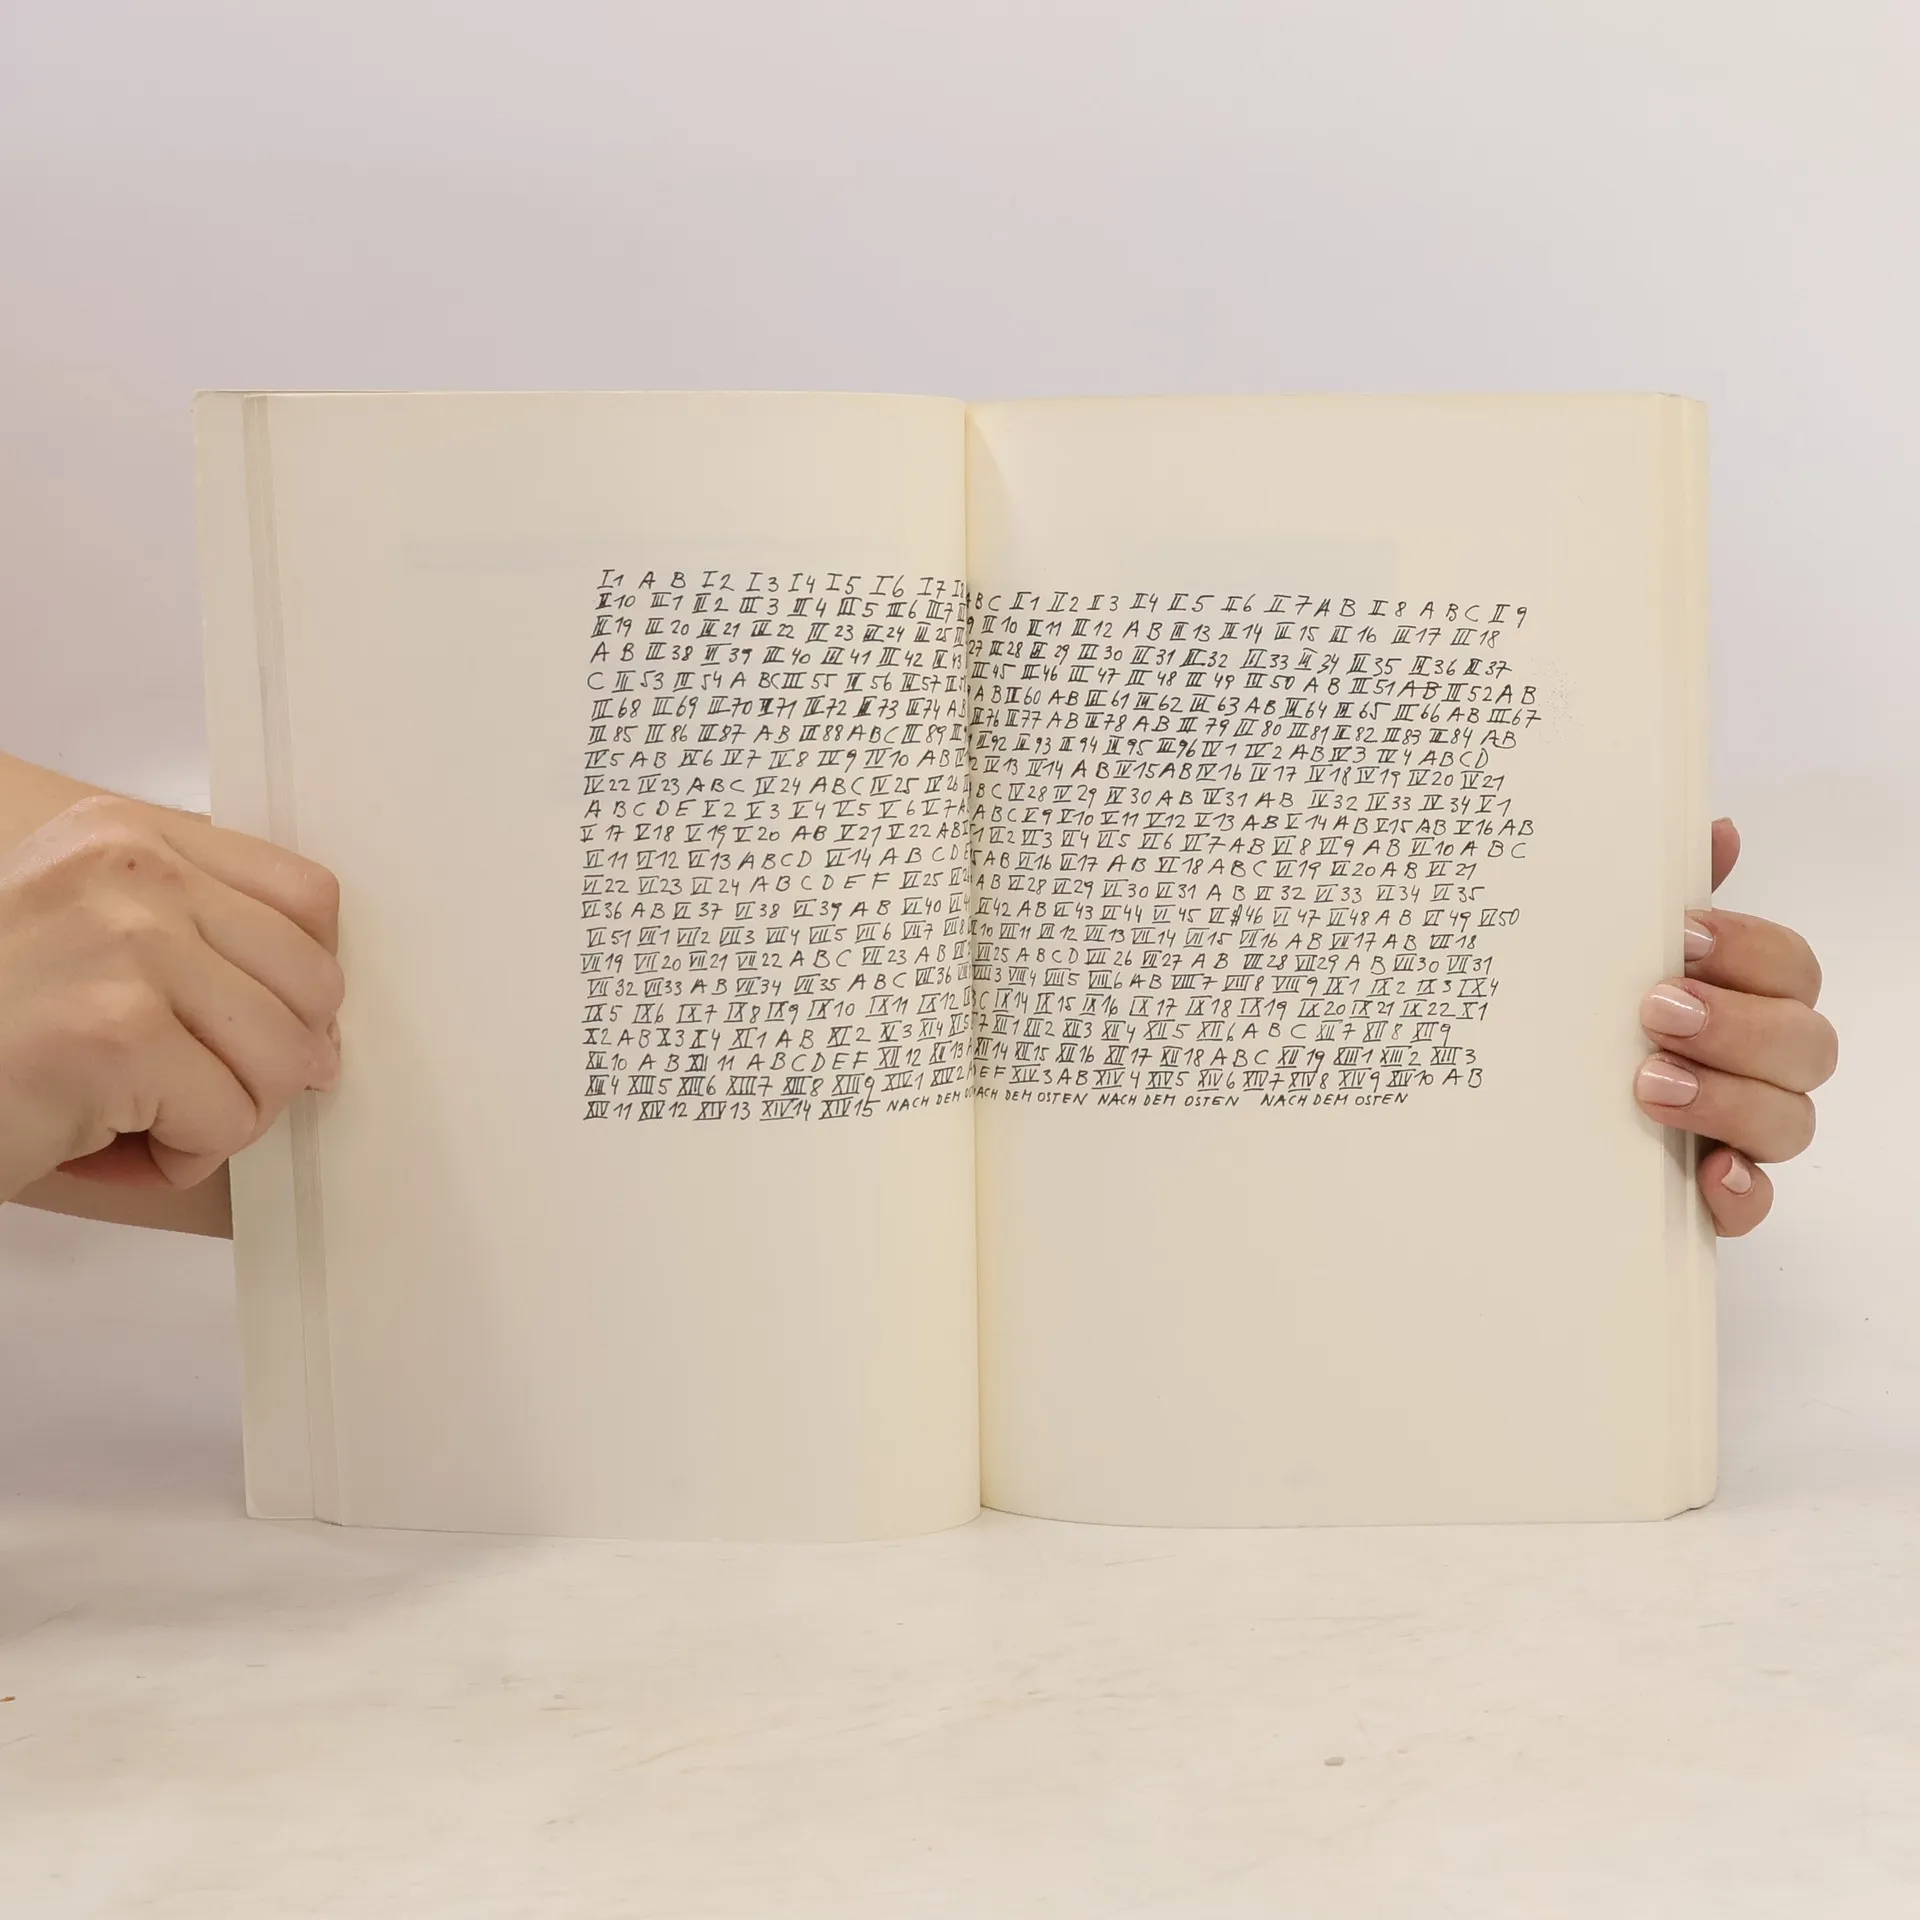 I1 A B I2 I3 I4 I5 I6 I7 I8 A B C II1 II2 II3 II4 II5 II6 II7 A B II8 A B C II9
II10 III1 III2 III3 III4 III5 III6 III7 9 III10 III11 III12 A B III13 III14 III15 III16 III17 III18
III19 III20 III21 III22 III23 III24 III25 27 III28 III29 III30 III31 III32 III33 III34 III35 III36 III37
A B III38 III39 III40 III41 III42 III43 III45 III46 III47 III48 III49 III50 A B III51 A B III52 A B
C III53 III54 A B C III55 III56 III57 A B III60 A B III61 III62 III63 A B III64 III65 III66 A B III67
III68 III69 III70 III71 III72 III73 III74 A B III76 III77 A B III78 A B III79 III80 III81 III82 III83 III84 A B
III85 III86 III87 A B III88 A B C III89 III92 III93 III94 III95 III96 IV1 IV2 A B IV3 IV4 A B C D
IV5 A B IV6 IV7 IV8 IV9 IV10 A B IV13 IV14 A B IV15 A B IV16 IV17 IV18 IV19 IV20 IV21
IV22 IV23 A B C IV24 A B C IV25 IV26 B C IV28 IV29 IV30 A B IV31 A B IV32 IV33 IV34 V1
A B C D E V2 V3 V4 V5 V6 V7 A A B C V9 V10 V11 V12 V13 A B V14 A B V15 A B V16 A B
V17 V18 V19 V20 A B V21 V22 A B VI2 VI3 VI4 VI5 VI6 VI7 A B VI8 VI9 A B VI10 A B C
VI11 VI12 VI13 A B C D VI14 A B C D E A B VI16 VI17 A B VI18 A B C VI19 VI20 A B VI21
VI22 VI23 VI24 A B C D E F VI25 A B VI28 VI29 VI30 VI31 A B VI32 VI33 VI34 VI35
VI36 A B VI37 VI38 VI39 A B VI40 VI42 A B VI43 VI44 VI45 VI46 VI47 VI48 A B VI49 VI50
VI51 VII1 VII2 VII3 VII4 VII5 VII6 VII7 VII8 VII10 VII11 VII12 VII13 VII14 VII15 VII16 A B VII17 A B VII18
VII19 VII20 VII21 VII22 A B C VII23 A B VII25 A B C D VII26 VII27 A B VII28 VII29 A B VII30 VII31
VII32 VII33 A B VII34 VII35 A B C VII36 VIII3 VIII4 VIII5 VIII6 A B VIII7 VIII8 VIII9 IX1 IX2 IX3 IX4
IX5 IX6 IX7 IX8 IX9 IX10 IX11 IX12 B C IX14 IX15 IX16 IX17 IX18 IX19 IX20 IX21 IX22 X1
X2 A B X3 X4 XI1 A B XI2 XI3 XI4 XI5 7 XII1 XII2 XII3 XII4 XII5 XII6 A B C XII7 XII8 XII9
XII10 A B XII11 A B C D E F XII12 XII13 XII14 XII15 XII16 XII17 XII18 A B C XII19 XIII1 XIII2 XIII3
XIII4 XIII5 XIII6 XIII7 XIII8 XIII9 XIV1 XIV2 D E F XIV3 A B XIV4 XIV5 XIV6 XIV7 XIV8 XIV9 XIV10 A B
XIV11 XIV12 XIV13 XIV14 XIV15 NACH DEM NACH DEM OSTEN NACH DEM OSTEN NACH DEM OSTEN